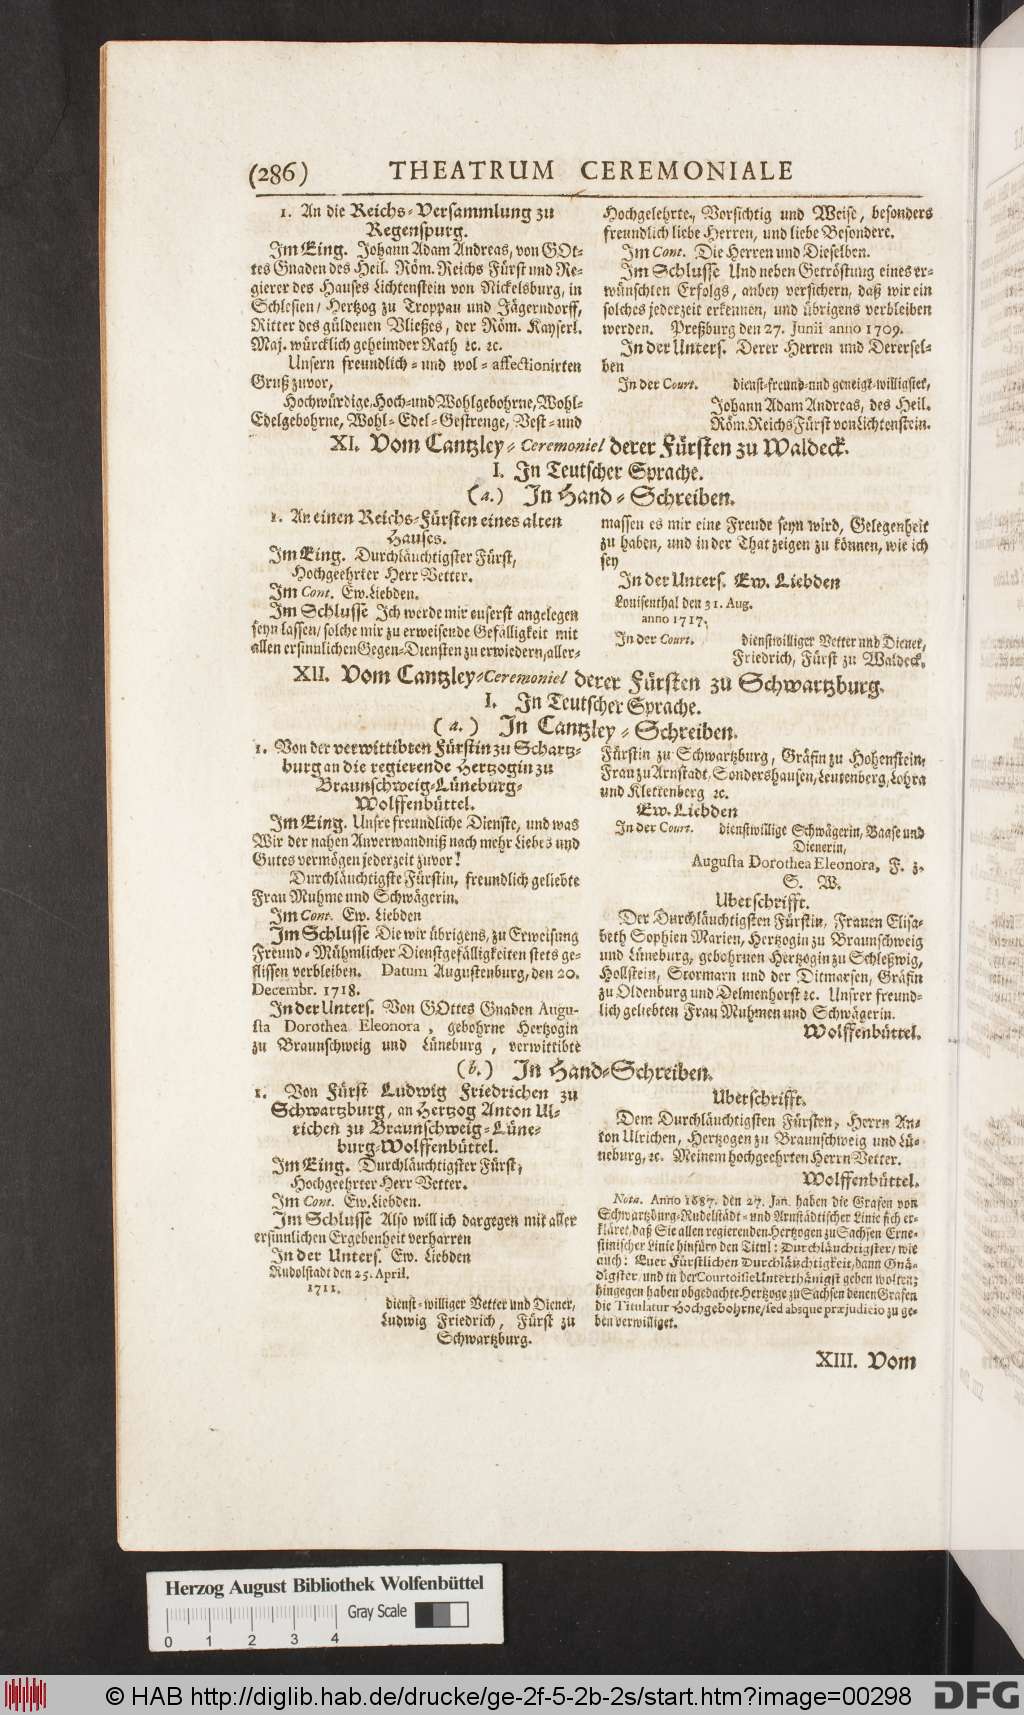 (286) THEATRUM CEREMONIALE
1. An die Reichs-Versammlung zu
Regenspurg.
Im Eing. Johann Adam Andreas, von GOt-
tes Gnaden des Heil. Röm. Reichs Fürst und Re-
gierer des Hauses Lichtenstein von Nickelsburg, in
Schlesien/ Hertzog zu Troppau und Jägerndorff,
Ritter des güldenen Vließes, der Röm. Kayserl.
Maj. würcklich geheimder Rath ꝛc. ꝛc.
Unsern freundlich- und wol-affectionirten
Gruß zuvor,
Hochwürdige, Hoch- und Wohlgebohrne, Wohl-
Edelgebohrne, Wohl-Edel-Gestrenge, Vest- und
Hochgelehrte, Vorsichtig und Weise, besonders
freundlich liebe Herren, und liebe Besondere.
Im Cont. Die Herren und Dieselben.
Im Schlusse Und neben Getröstung eines er-
wünschten Erfolgs, anbey versichern, daß wir ein
solches jederzeit erkennen, und übrigens verbleiben
werden. Preßburg den 27. Junii anno 1709.
In der Unters. Derer Herren und Dererse​l-
ben
In der Court. dienst-freund- und geneigt-willigster,
Johann Adam Andreas, des Heil.
Röm. Reichs Fürst von Lichtenstein.
XI. Vom Cantzley-Ceremoniel derer Fürsten zu Waldeck.
I. In Teutscher Sprache.
(a.) In Hand-Schreiben.
1. An einen Reichs-Fürsten eines alten
Hauses.
Im Eing. Durchläuchtigster Fürst,
Hochgeehrter Herr Vetter.
Im Cont. Ew. Liebden.
Im Schlusse Ich werde mir euserst angelegen
seyn lassen/ solche mir zu erweisende Gefälligkeit mit
allen ersinnlichen Gegen-Diensten zu erwiedern, aller-
massen es mir eine Freude seyn wird, Gelegenheit
zu haben, und in der That zeigen zu können, wie ich
sey
In der Unters. Ew. Liebden
Louisenthal den 31. Aug.
anno 1717.
In der Court. dienstwilliger Vetter und Diener,
Friedrich, Fürst zu Waldeck.
XII. Vom Cantzley-Ceremoniel derer Fürsten zu Schwartzburg.
I. In Teutscher Sprache.
(a.) In Cantzley-Schreiben.
1. Von der verwittibten Fürstin zu Schartz-
burg an die regierende Hertzogin zu
Braunschweig-Lüneburg-
Wolffenbüttel.
Im Eing. Unsre freundliche Dienste, und was
Wir der nahen Anverwandniß nach mehr Liebes und
Gutes vermögen jederzeit zuvor!
Durchläuchtigste Fürstin, freundlich geliebte
Frau Muhme und Schwägerin.
Im Cont. Ew. Liebden
Im Schlusse Die wir übrigens, zu Erweisung
Freund-Mühmlicher Dienstgefälligkeiten stets ge-
flissen verbleiben. Datum Augustenburg, den 20.
Decembr. 1718.
In der Unters. Von GOttes Gnaden Augu-
sta Dorothea Eleonora, gebohrne Hertzogin
zu Braunschweig und Lüneburg, verwittibte
Fürstin zu Schwartzburg, Gräfin zu Hohenstein,
Frau zu Arnstadt, Sondershausen, Leutenberg, Lohra
und Klettenberg ꝛc.
Ew. Liebden
In der Court. dienstwillige Schwägerin, Baase und
Dienerin,
Augusta Dorothea Eleonora, F. z.
S. W.
Uberschrifft.
Der Durchläuchtigsten Fürstin, Frauen Elisa-
beth Sophien Marien, Hertzogin zu Braunschweig
und Lüneburg, gebohrnen Hertzogin zu Schleßwig,
Hollstein, Stormarn und der Ditmarsen, Gräfin
zu Oldenburg und Delmenhorst ꝛc. Unsrer freund-
lich geliebten Frau Muhmen und Schwägerin.
Wolffenbüttel.
(b.) In Hand-Schreiben.
1. Von Fürst Ludwig Friedrichen zu
Schwartzburg, an Hertzog Anton Ul-
richen zu Braunschweig-Lüne-
burg-Wolffenbüttel.
Im Eing. Durchläuchtigster Fürst,
Hochgeehrter Herr Vetter.
Im Cont. Ew. Liebden.
Im Schlusse Also will ich dargegen mit aller
ersinnlichen Ergebenheit verharren
In der Unters. Ew. Liebden
Rudolstadt den 25. April.
1711.
dienst-williger Vetter und Diener,
Ludwig Friedrich, Fürst zu
Schwartzburg.
Uberschrifft.
Dem Durchläuchtigsten Fürsten, Herrn An-
ton Ulrichen, Hertzogen zu Braunschweig und Lü-
neburg, ꝛc. Meinem hochgeehrten Herrn Vetter.
Wolffenbüttel.
Nota. Anno 1687. den 27. Jan. haben die Grafen von
Schwartzburg-Rudelstädt- und Arnstädtischer Linie sich er-
kläret, daß Sie allen regierenden Hertzogen zu Sachsen Erne-
stinischer Linie hinfüro den Titul: Durchläuchtigster/ wie
auch: Euer Fürstlichen Durchläuchtigkeit, dann Gnä-
digster, und in der Courtoisie Unterthänigst geben wolten;
hingegen haben obgedachte Hertzoge zu Sachsen denen Grafen
die Titulatur Hochgebohrne/ sed absque præjudicio zu ge-
ben verwilliget.
XIII. Vom
Herzog August Bibliothek Wolfenbüttel
Gray Scale
0 1 2 3 4
© HAB http://diglib.hab.de/drucke/ge-2f-5-2b-2s/start.htm?image=00298 DFG